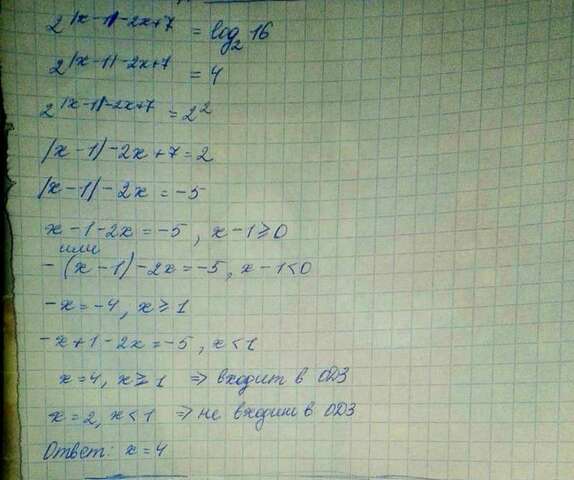 2^|x-1|-2x+7 = log₂ 16
2^|x-1|-2x+7 = 4
2^|x-1|-2x+7 = 2²
|x-1|-2x+7=2
|x-1|-2x=-5
x-1-2x=-5, x-1≥0
или
-(x-1)-2x=-5, x-1<0
-x=-4, x≥1
-x+1-2x=-5, x<1
x=4, x≥1 ⇒ входит в ОДЗ
x=2, x<1 ⇒ не входит в ОДЗ
Ответ: x=4